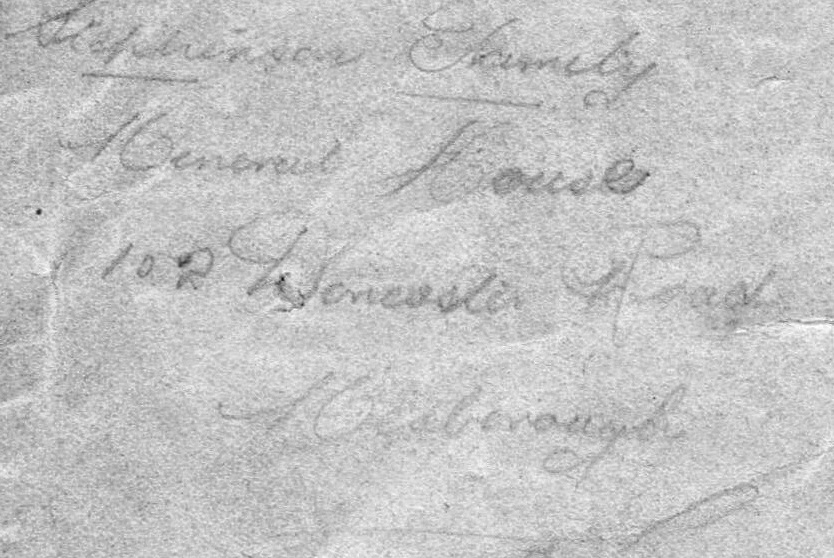 Stephinson Family
House
102 Doncaster Road
Mexborough